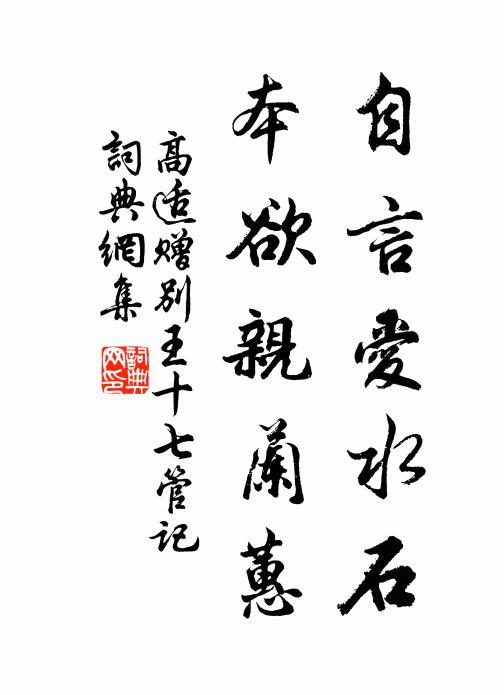 自言愛水石
本欲親蘭蕙
高适贈别王十七管記
詞典網集
詞典網印